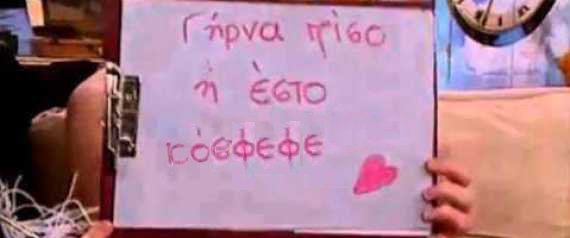 Γήρνα πίσο
ή έστο
κόσφεφε